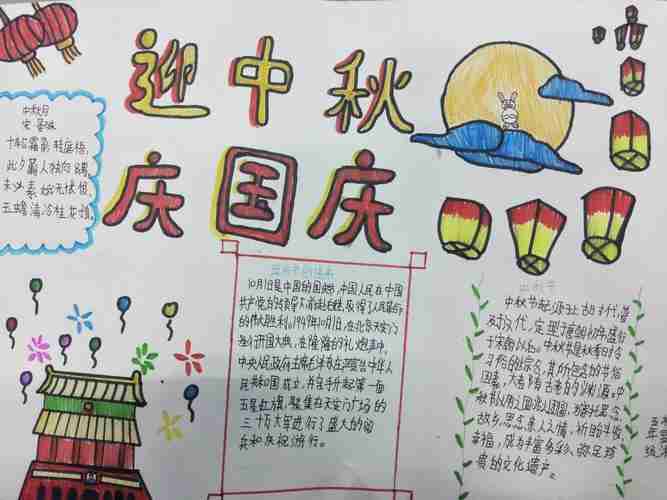 迎中秋
庆国庆
中秋月
宋 晏殊
十轮霜影转庭梧
此夕羁人独向隅
未必素娥无怅恨
玉蟾清冷桂花孤
国庆节的由来
10月1日是中国的国庆节,中国人民在中国
共产党的领导下,前赴后继,取得了人民革命
的伟大胜利。1949年10月1日,在北京天安门
举行开国大典,在隆隆的礼炮声中,
中央人民政府主席毛泽东在宣告中华人
民共和国成立,并亲手升起第一面
五星红旗,聚集在天安门广场的
三十万大军进行了盛大的阅
兵和庆祝游行。
中秋节
中秋节起源于上古时代,普
及于汉代,定型于唐朝初年,盛行
于宋朝以后。中秋节是秋季时令
习俗的综合,其所包含的节俗
因素,大都有古老的渊源。中
秋节以月之圆兆人团圆,为寄托思念
故乡,思念亲人之情,祈盼丰收、
幸福,成为丰富多彩、弥足珍
贵的文化遗产。